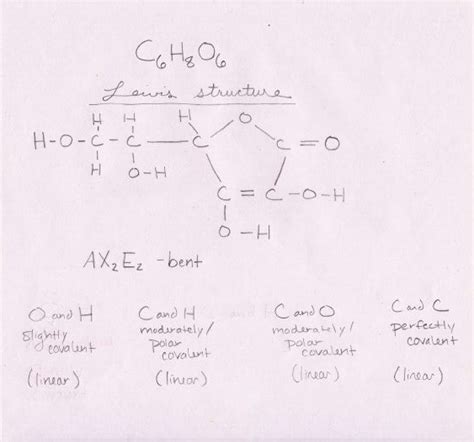 C6H8O6
Lewis structure
H H H O
H-O-C-C-C C=O
H O-H
C=C-O-H
O-H
AX2E2 -bent
O and H
slightly covalent
(linear)
C and H
moderately/
polar
covalent
(linear)
C and O
moderately/
polar
covalent
(linear)
C and C
perfectly
covalent
(linear)